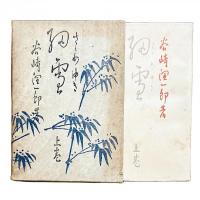 谷崎潤一郎著
細雪
さゝめゆき
上巻
谷崎潤一郎著
細雪
上巻